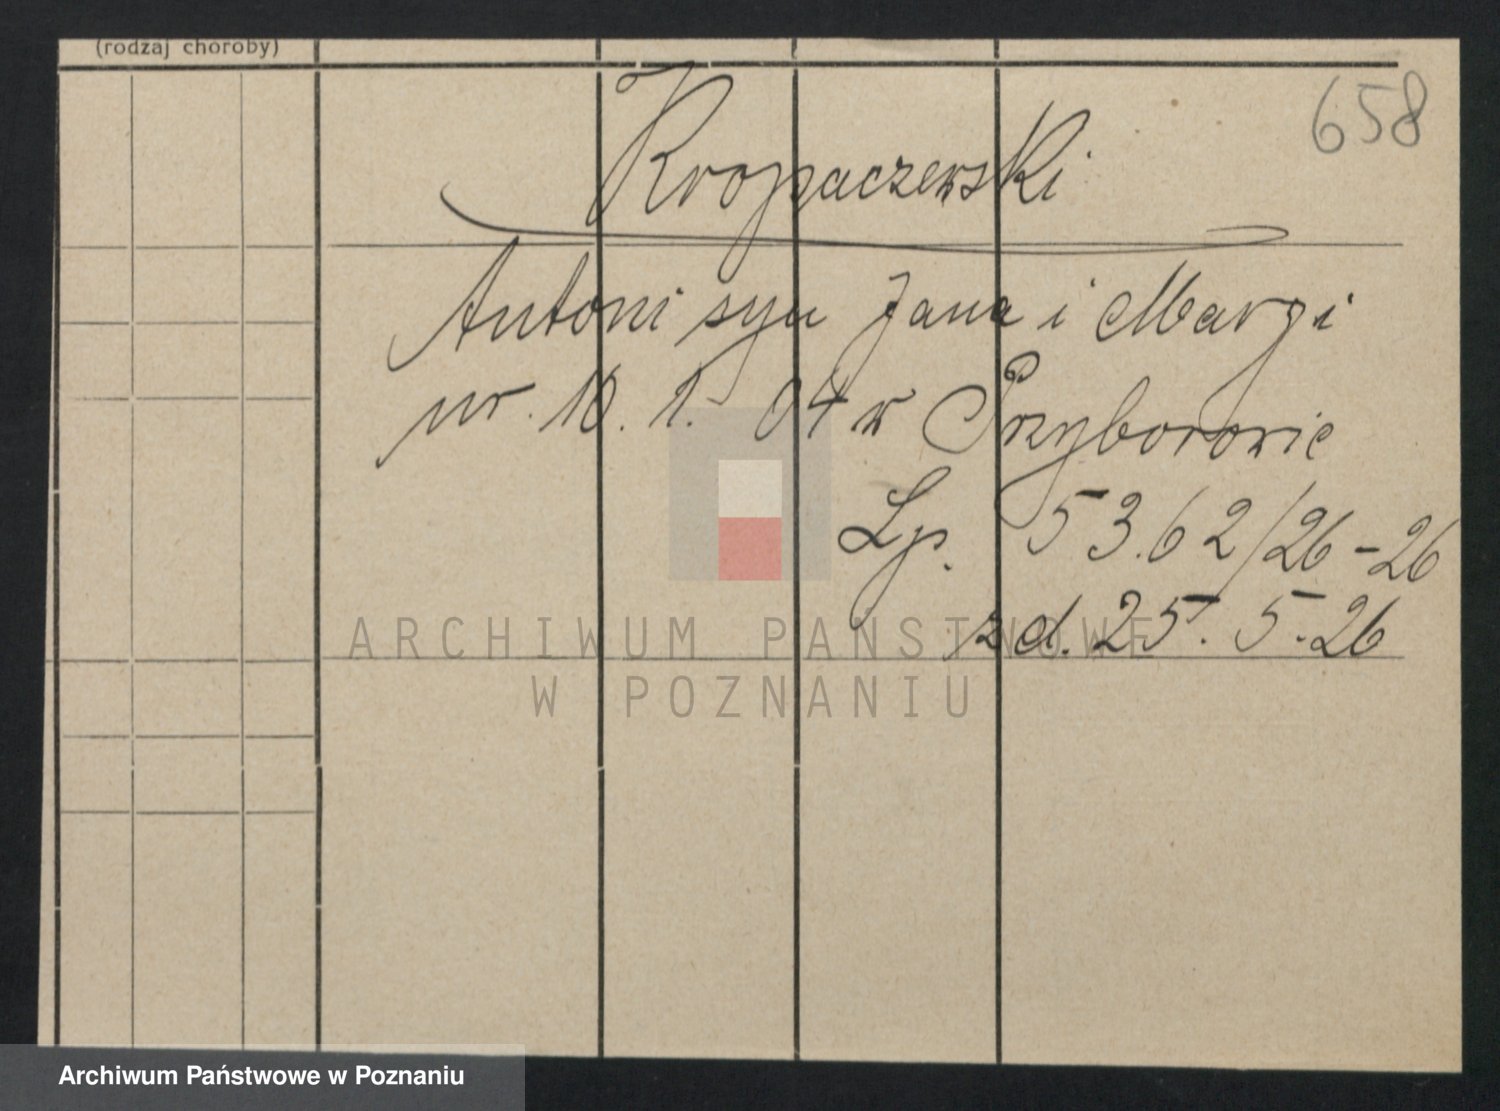 (rodzaj choroby)
658
Kropaczewski
Antoni syn Jana i Maryi
ur. 10. 1. 04 w Przyborowie
Lp. 53.62/26-26
zd. 25. 5.26
ARCHIWUM PAŃSTWOWE
W POZNANIU
Archiwum Państwowe w Poznaniu